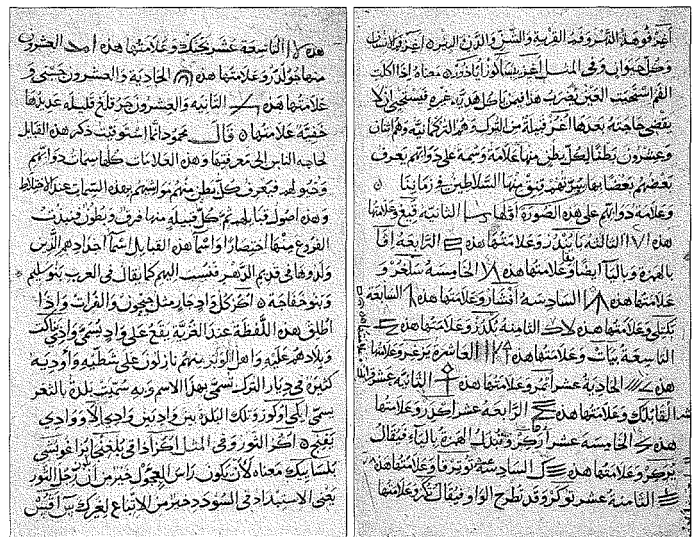 وكل حيوان وفى المثل معناه اذا اكلت
الفم استحيت العين يضرب هذا فيمن ياكل هدية غيره فيستحيى ان لا
يقضى حاجته بعدها اغز قبيلة من الترك وهم التركمانية وهم اثنان
وعشرون بطنا لكل بطن منها علامة وسمة على دوابهم يعرف
بعضهم بعضا بها قنق منها السلاطين فى زماننا
وعلامة دوابهم على هذه الصورة اولها الثانية قيغ علامتها
هذه الثالثة بايندر وعلامتها هذه الرابعة ايفا
بالهمزة وبالياء ايضا يفا وعلامتها هذه الخامسة سلغر و
علامتها هذه السادسة افشار وعلامتها هذه السابعة
بكتلى وعلامتها هذه الثامنة بكدز وعلامتها هذه
التاسعة بيات وعلامتها هذه العاشرة يزغر وعلامتها
هذه الحادية عشر ايمر وعلامتها هذه الثانية عشر
وعلامتها هذه الرابعة عشر اكدر وعلامتها
هذه الخامسة عشر اركر وتبدل الهمزة بالياء فيقال
يركر وعلامتها هذه السادسة توتيرقا وعلامتها هذه
الثامنة عشر توكر وقد تطرح الواو فيقال تكر وعلامتها
هذه التاسعة عشر بجنك وعلامتها هذه العشرون
منها جولدر وعلامتها هذه الحادية والعشرون جبنى و
علامتها هذه الثانية والعشرون جرقلغ قليلة عديدها
خفية علامتها قال محمود انما استوفيت ذكر هذه القبايل
لحاجة الناس الى معرفتها وهذه العلامات كلها سمات دوابهم
وخيولهم فيعرف كل بطن منهم مواشيهم بهذه السمات عند الاختلاط
وهذه اصول قبايلهم ثم كل قبيلة منها فرق وبطون فنبذت
الفروع منها اختصارا واسما هذه القبايل اسما اجدادهم الذين
ولدوها فى قديم الدهر فنسب اليهم كما يقال فى العرب بنو سليم
وبنو خفاجة اكز كل واد جار مثل جيحون والفرات واذا
اطلق هذه اللفظة عند الغزية يقع على وادى
وبلادهم عليه واهل الوبر منهم نازلون على شطيه واودية
كثيرة فى ديار الترك تسمى بهذا الاسم وبه سميت بلدة بالثغر
يسمى ايكى اوكوز وتلك البلدة بين واديين وادى الا ووادى
اكز الثور وفى المثل
معناه لان يكون راس العجول خير من ان يكون رجل الثور
يعنى الاستبداد فى السؤدد خير من الاتباع لغيرك